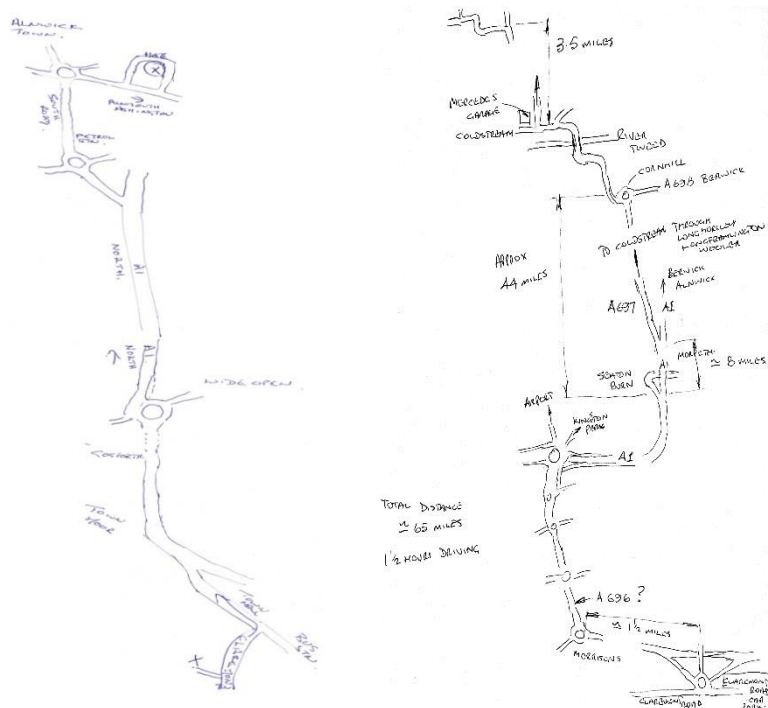 ALNWICK
TOWN.
SOUTH
ROAD.
PETROL
STN.
A1
NORTH.
A1
NORTH
WIDEOPEN.
GOSFORTH
TOWN
MOOR
BUS
STN.
3.5 MILES
MERCEDES
GARAGE
COLDSTREAM
RIVER
TWEED
CORNHILL
A698 BERWICK
TO COLDSTREAM THROUGH
LONGHORSLEY
LONGFRAMLINGTON
WOOLER
APPROX
44 MILES
BERWICK
ALNWICK
A697
A1
MORPETH.
≃ 8 MILES
A1
SEATON
BURN
AIRPORT
KINGSTON
PARK
A1
TOTAL DISTANCE
≃ 65 MILES
1½ HOURS DRIVING
A696?
≃ 1½ MILES
MORRISONS
CLAREMONT
ROAD
CAR
PARK
CLAREMONT ROAD